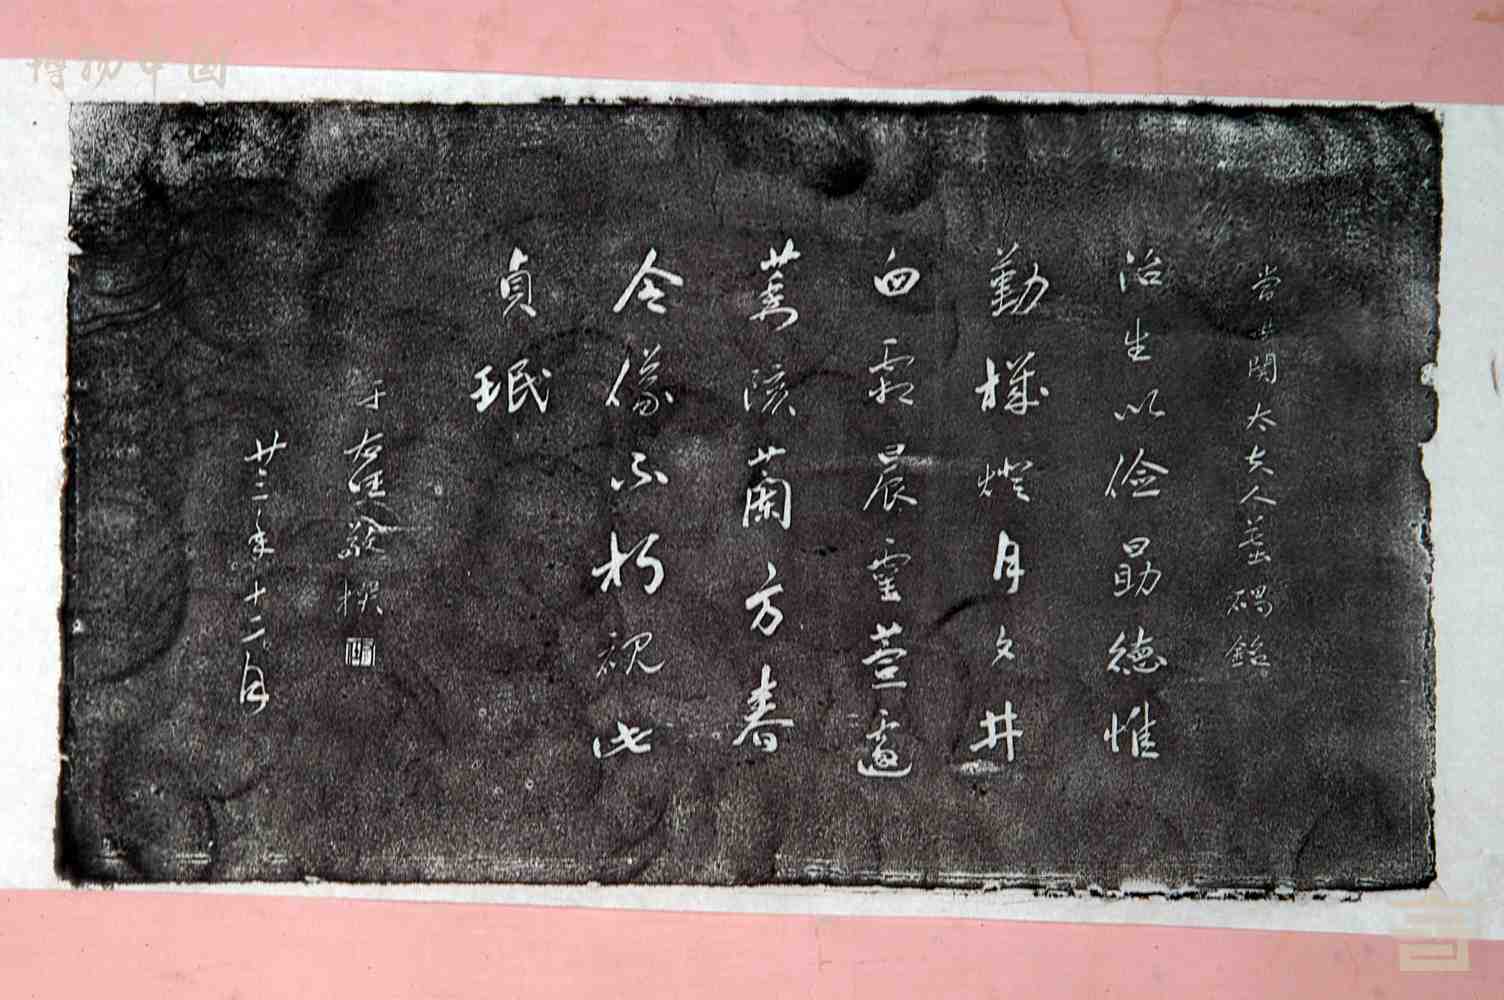 博物中国
常母閔太夫人墓碣銘
治生以儉勗德惟
勤機燈月夕井
臼霜晨靈萱遽
萎陔蘭方春
令儀不朽視此
貞珉
于右任敬撰
廿三年十二月